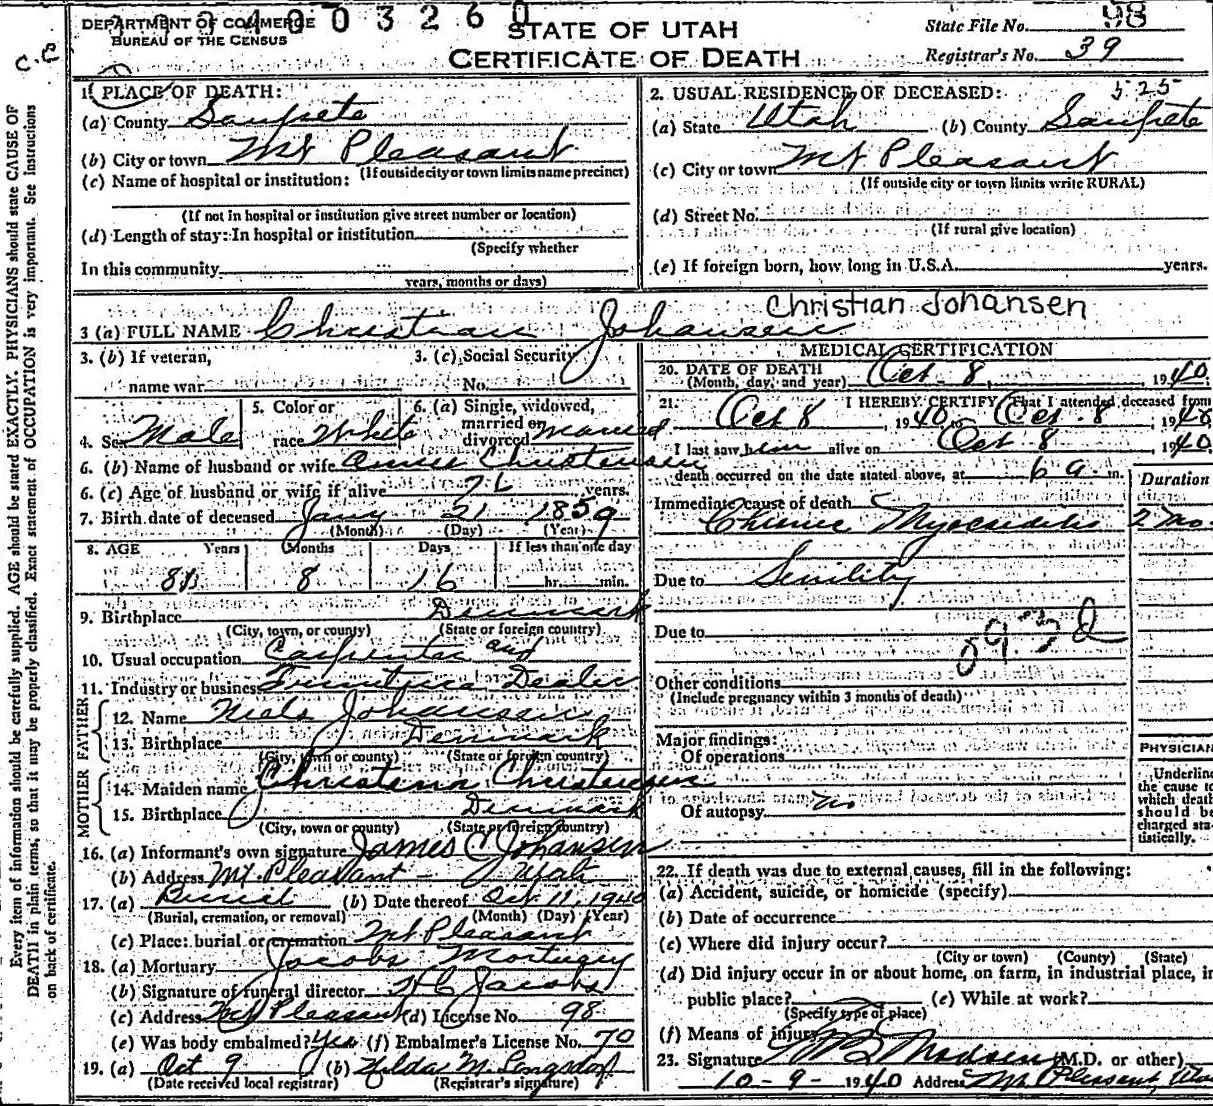 DEPARTMENT OF COMMERCE
BUREAU OF THE CENSUS
4 0 0 3 2 6 0
STATE OF UTAH
CERTIFICATE OF DEATH
State File No. 98
Registrar's No. 39
C.C
Every item of information should be carefully supplied. AGE should be stated EXACTLY. PHYSICIANS should state CAUSE OF
DEATH in plain terms, so that it may be properly classified. Exact statement of OCCUPATION is very important. See instructions
on back of certificate.
1. PLACE OF DEATH:
(a) County Sanpete
(b) City or town Mt Pleasant
(If outside city or town limits name precinct)
(c) Name of hospital or institution:
(If not in hospital or institution give street number or location)
(d) Length of stay: In hospital or institution
(Specify whether
In this community
years, months or days)
2. USUAL RESIDENCE OF DECEASED: 525
(a) State Utah (b) County Sanpete
(c) City or town Mt Pleasant
(If outside city or town limits write RURAL)
(d) Street No.
(If rural give location)
(e) If foreign born, how long in U.S.A. years.
Christian Johansen
3 (a) FULL NAME Christian Johansen
3. (b) If veteran,
name war
3. (c) Social Security
No.
4. Sex Male
5. Color or
race White
6. (a) Single, widowed,
married or
divorced married
6. (b) Name of husband or wife Christensen
6. (c) Age of husband or wife if alive years.
7. Birth date of deceased Jany 21 1859
(Month) (Day) (Year)
8. AGE Years Months Days If less than one day
81 8 16 hr. min.
9. Birthplace Denmark
(City, town, or county) (State or foreign country)
10. Usual occupation Carpenter and
11. Industry or business Furniture Dealer
FATHER
12. Name Niels Johanssen
13. Birthplace Denmark
(City, town or county) (State or foreign country)
MOTHER
14. Maiden name Christena Christensen
15. Birthplace Denmark
(City, town or county) (State or foreign country)
16. (a) Informant's own signature James C Johansen
(b) Address Mt. Pleasant - Utah
17. (a) Burial (b) Date thereof Oct. 11, 1940
(Burial, cremation, or removal) (Month) (Day) (Year)
(c) Place: burial or cremation Mt Pleasant
18. (a) Mortuary Jacobs Mortuary
(b) Signature of funeral director H C Jacobs
(c) Address Mt Pleasant (d) License No. 98
(e) Was body embalmed? Yes (f) Embalmer's License No. 70
19. (a) Oct 9 (b) Hilda M. Longsdorf
(Date received local registrar) (Registrar's signature)
MEDICAL CERTIFICATION
20. DATE OF DEATH
(Month, day, and year) Oct. 8, 1940.
21. I HEREBY CERTIFY That I attended deceased from
Oct 8, 1940 to Oct. 8, 1940
I last saw him alive on Oct 8, 1940.
death occurred on the date stated above, at 6 a. m.
Duration
Immediate cause of death
Chronic Myocarditis 2 mo.
Due to Senility
Due to
Other conditions
(Include pregnancy within 3 months of death)
Major findings:
Of operations
Of autopsy no
PHYSICIAN
Underline
the cause to
which death
should be
charged sta-
tistically.
22. If death was due to external causes, fill in the following:
(a) Accident, suicide, or homicide (specify)
(b) Date of occurrence
(c) Where did injury occur?
(City or town) (County) (State)
(d) Did injury occur in or about home, on farm, in industrial place, in
public place? (e) While at work?
(Specify type of place)
(f) Means of injury
23. Signature Madsen (M.D. or other)
10-9-1940 Address Mt Pleasant, Utah